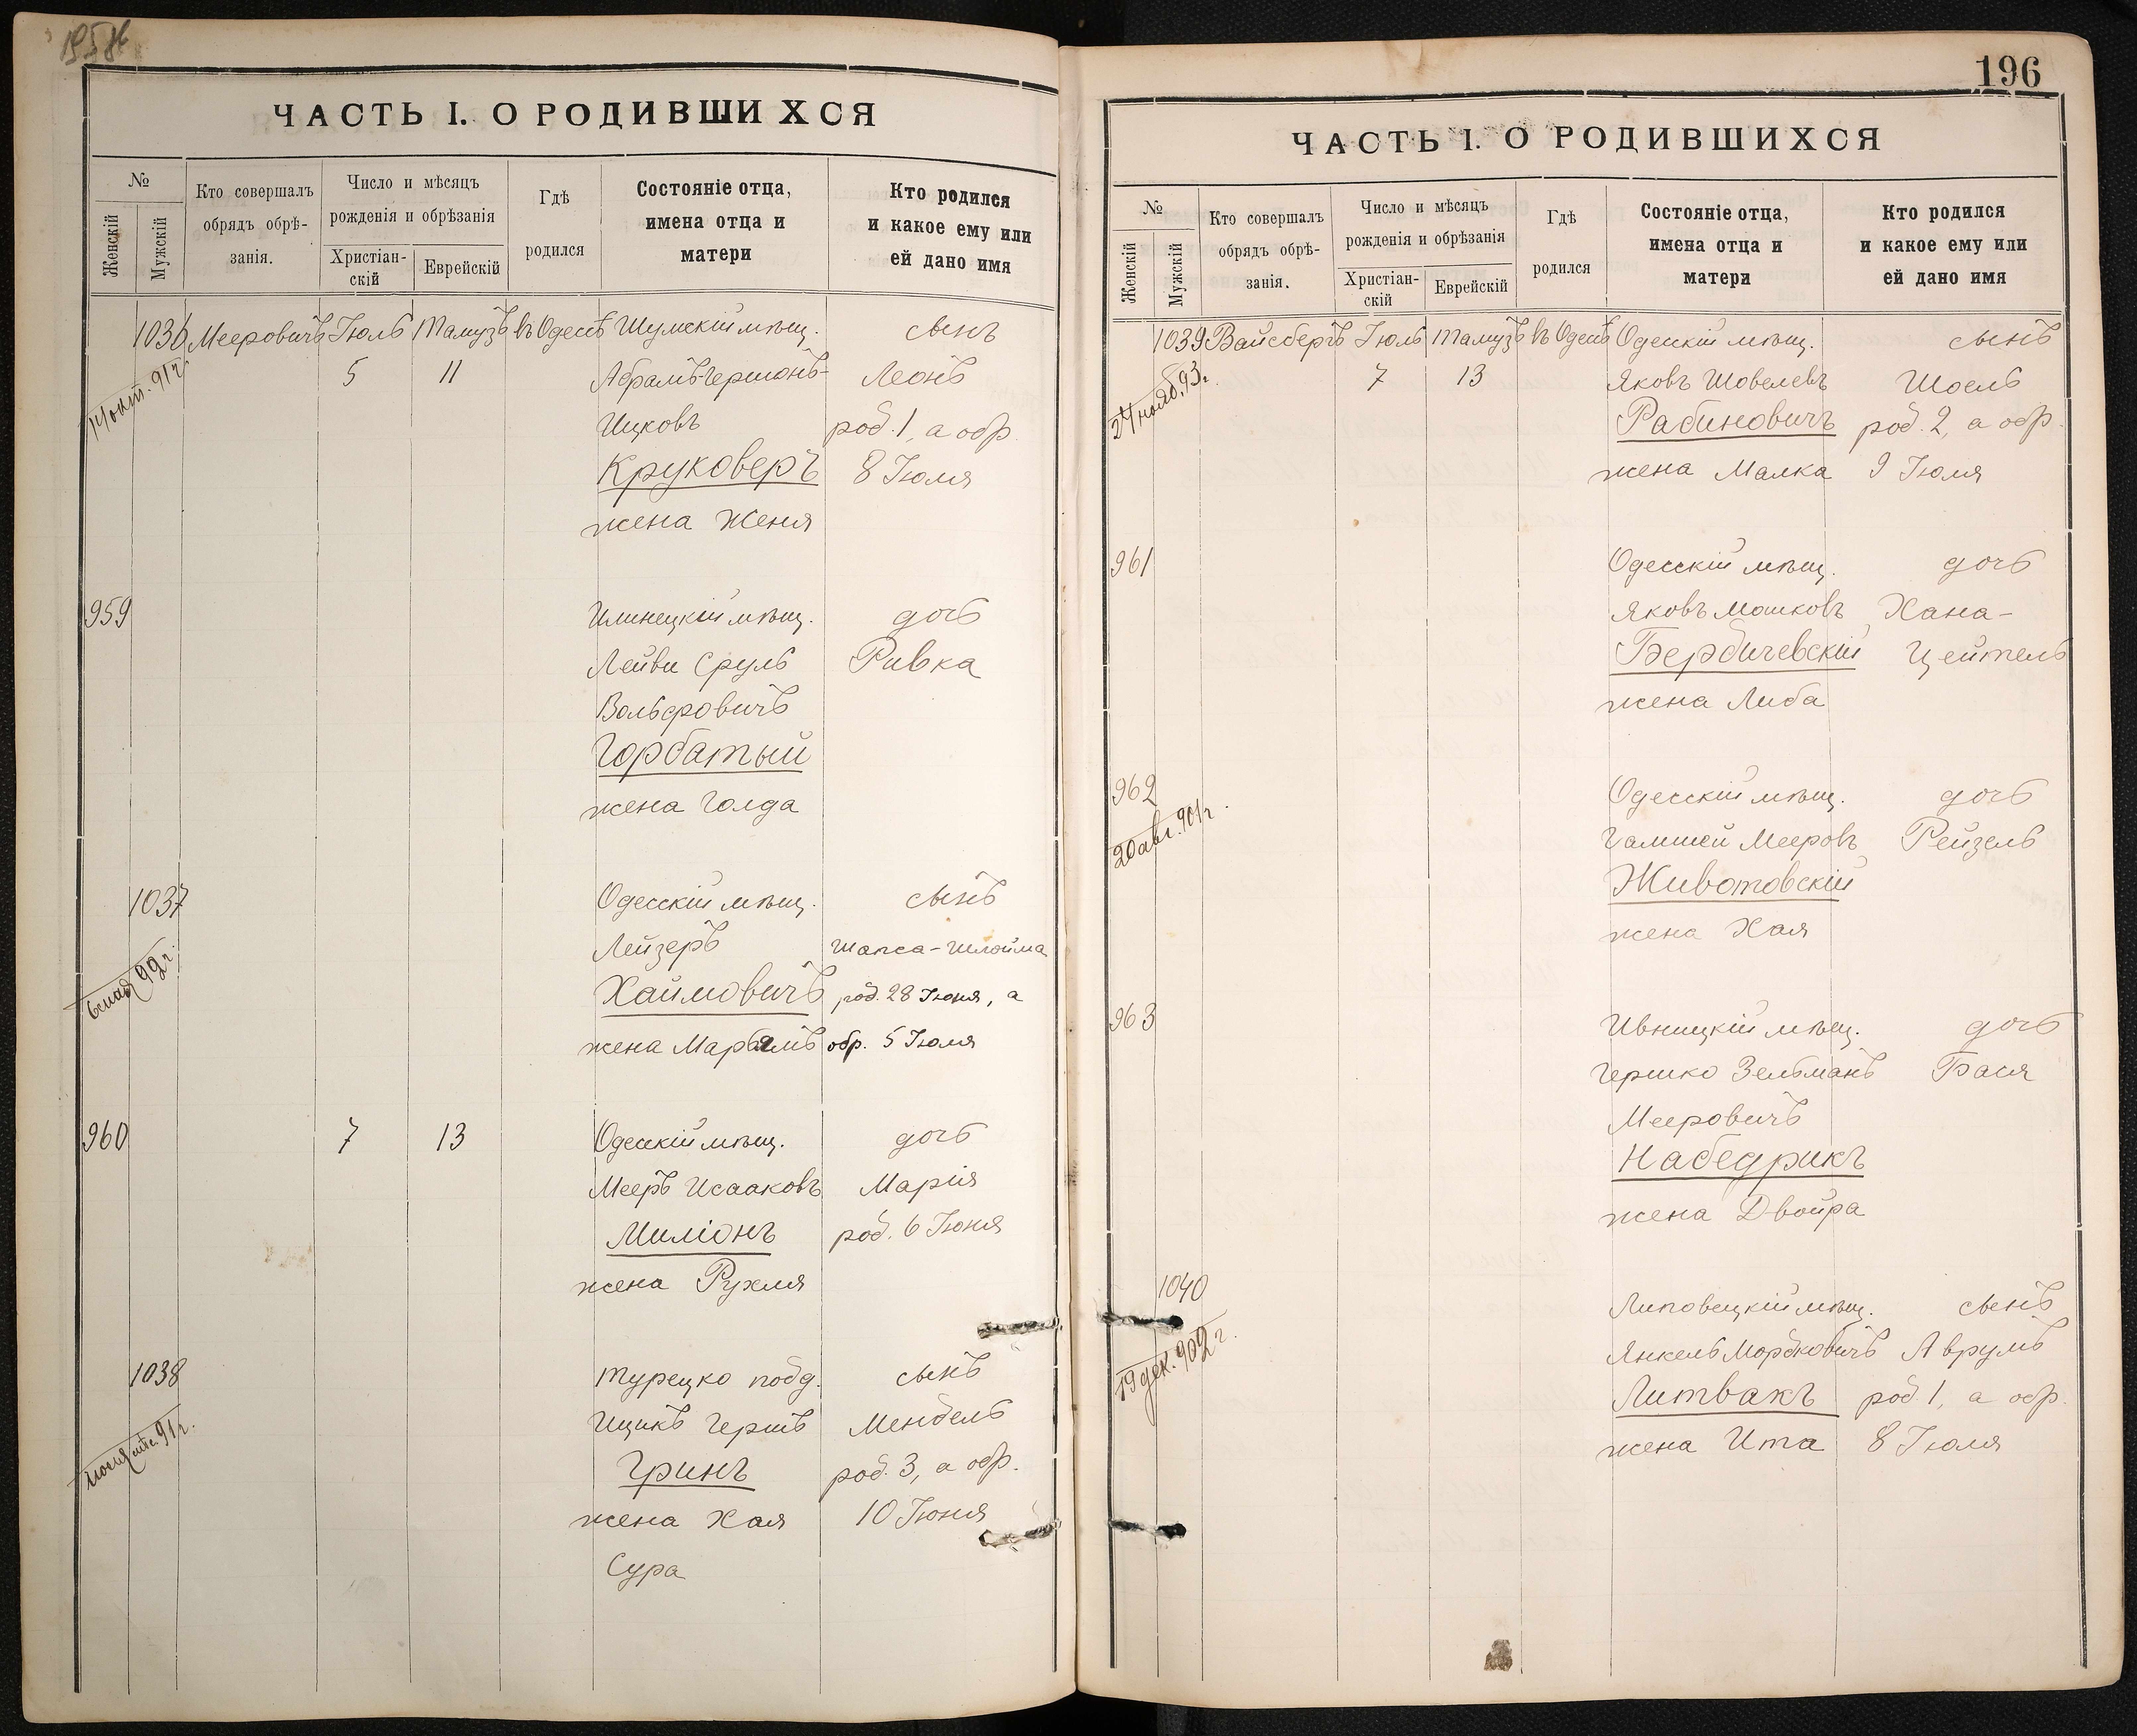 ЧАСТЬ I. О РОДИВШИХСЯ
№
Женскій
Мужскій
Кто совершалъ
обрядъ обрѣ-
занія.
Число и мѣсяцъ
рожденія и обрѣзанія
Христіан-
скій
Еврейскій
Гдѣ
родился
Состояніе отца,
имена отца и
матери
Кто родился
и какое ему или
ей дано имя
1036 Мееровичъ Іюль Тамузъ въ Одессѣ Шумскій мѣщ. сынъ
14 окт. 91 г. 5 11 Абрамъ-Гершонъ- Леонъ
Ицковъ род. 1, а обр.
Круковеръ 8 Іюля
жена Женя
959 Илинецкій мѣщ. дочь
Лейви Сруль Ривка
Вольфовичъ
Горбатый
жена Голда
1037 Одесскій мѣщ. сынъ
Лейзеръ Шапса-Шлойма
Хаймовичъ род. 28 Іюня, а
жена Марьямъ обр. 5 Іюля
960 7 13 Одесскій мѣщ. дочь
Мееръ Исааковъ Марія
Миліонъ род. 6 Іюня
жена Рухля
1038 Турецко подд. сынъ
91 г. Ицикъ Гершъ Мендель
Гринъ род. 3, а обр.
жена Хая 10 Іюня
Сура
196
ЧАСТЬ I. О РОДИВШИХСЯ
№
Женскій
Мужскій
Кто совершалъ
обрядъ обрѣ-
занія.
Число и мѣсяцъ
рожденія и обрѣзанія
Христіан-
скій
Еврейскій
Гдѣ
родился
Состояніе отца,
имена отца и
матери
Кто родился
и какое ему или
ей дано имя
1039 Вайсбергъ Іюль Тамузъ въ Одессѣ Одесскій мѣщ. сынъ
24 нояб. 93 г. 7 13 Яковъ Шовелевъ Шоель
Рабиновичъ род. 2, а обр.
жена Малка 9 Іюля
961 Одесскій мѣщ. дочь
Яковъ Мошковъ Хана-
Бердичевскій Цейтель
жена Либа
962 Одесскій мѣщ. дочь
20 авг. 901 г. Гамшей Мееровъ Рейзель
Животовскій
жена Хая
963 Ивницкій мѣщ. дочь
Гершко Зельманъ Бася
Мееровичъ
Набедрикъ
жена Двойра
1040 Липовецкій мѣщ. сынъ
19 дек. 902 г. Янкель Мордковичъ Аврумъ
Литвакъ род. 1, а обр.
жена Ита 8 Іюля